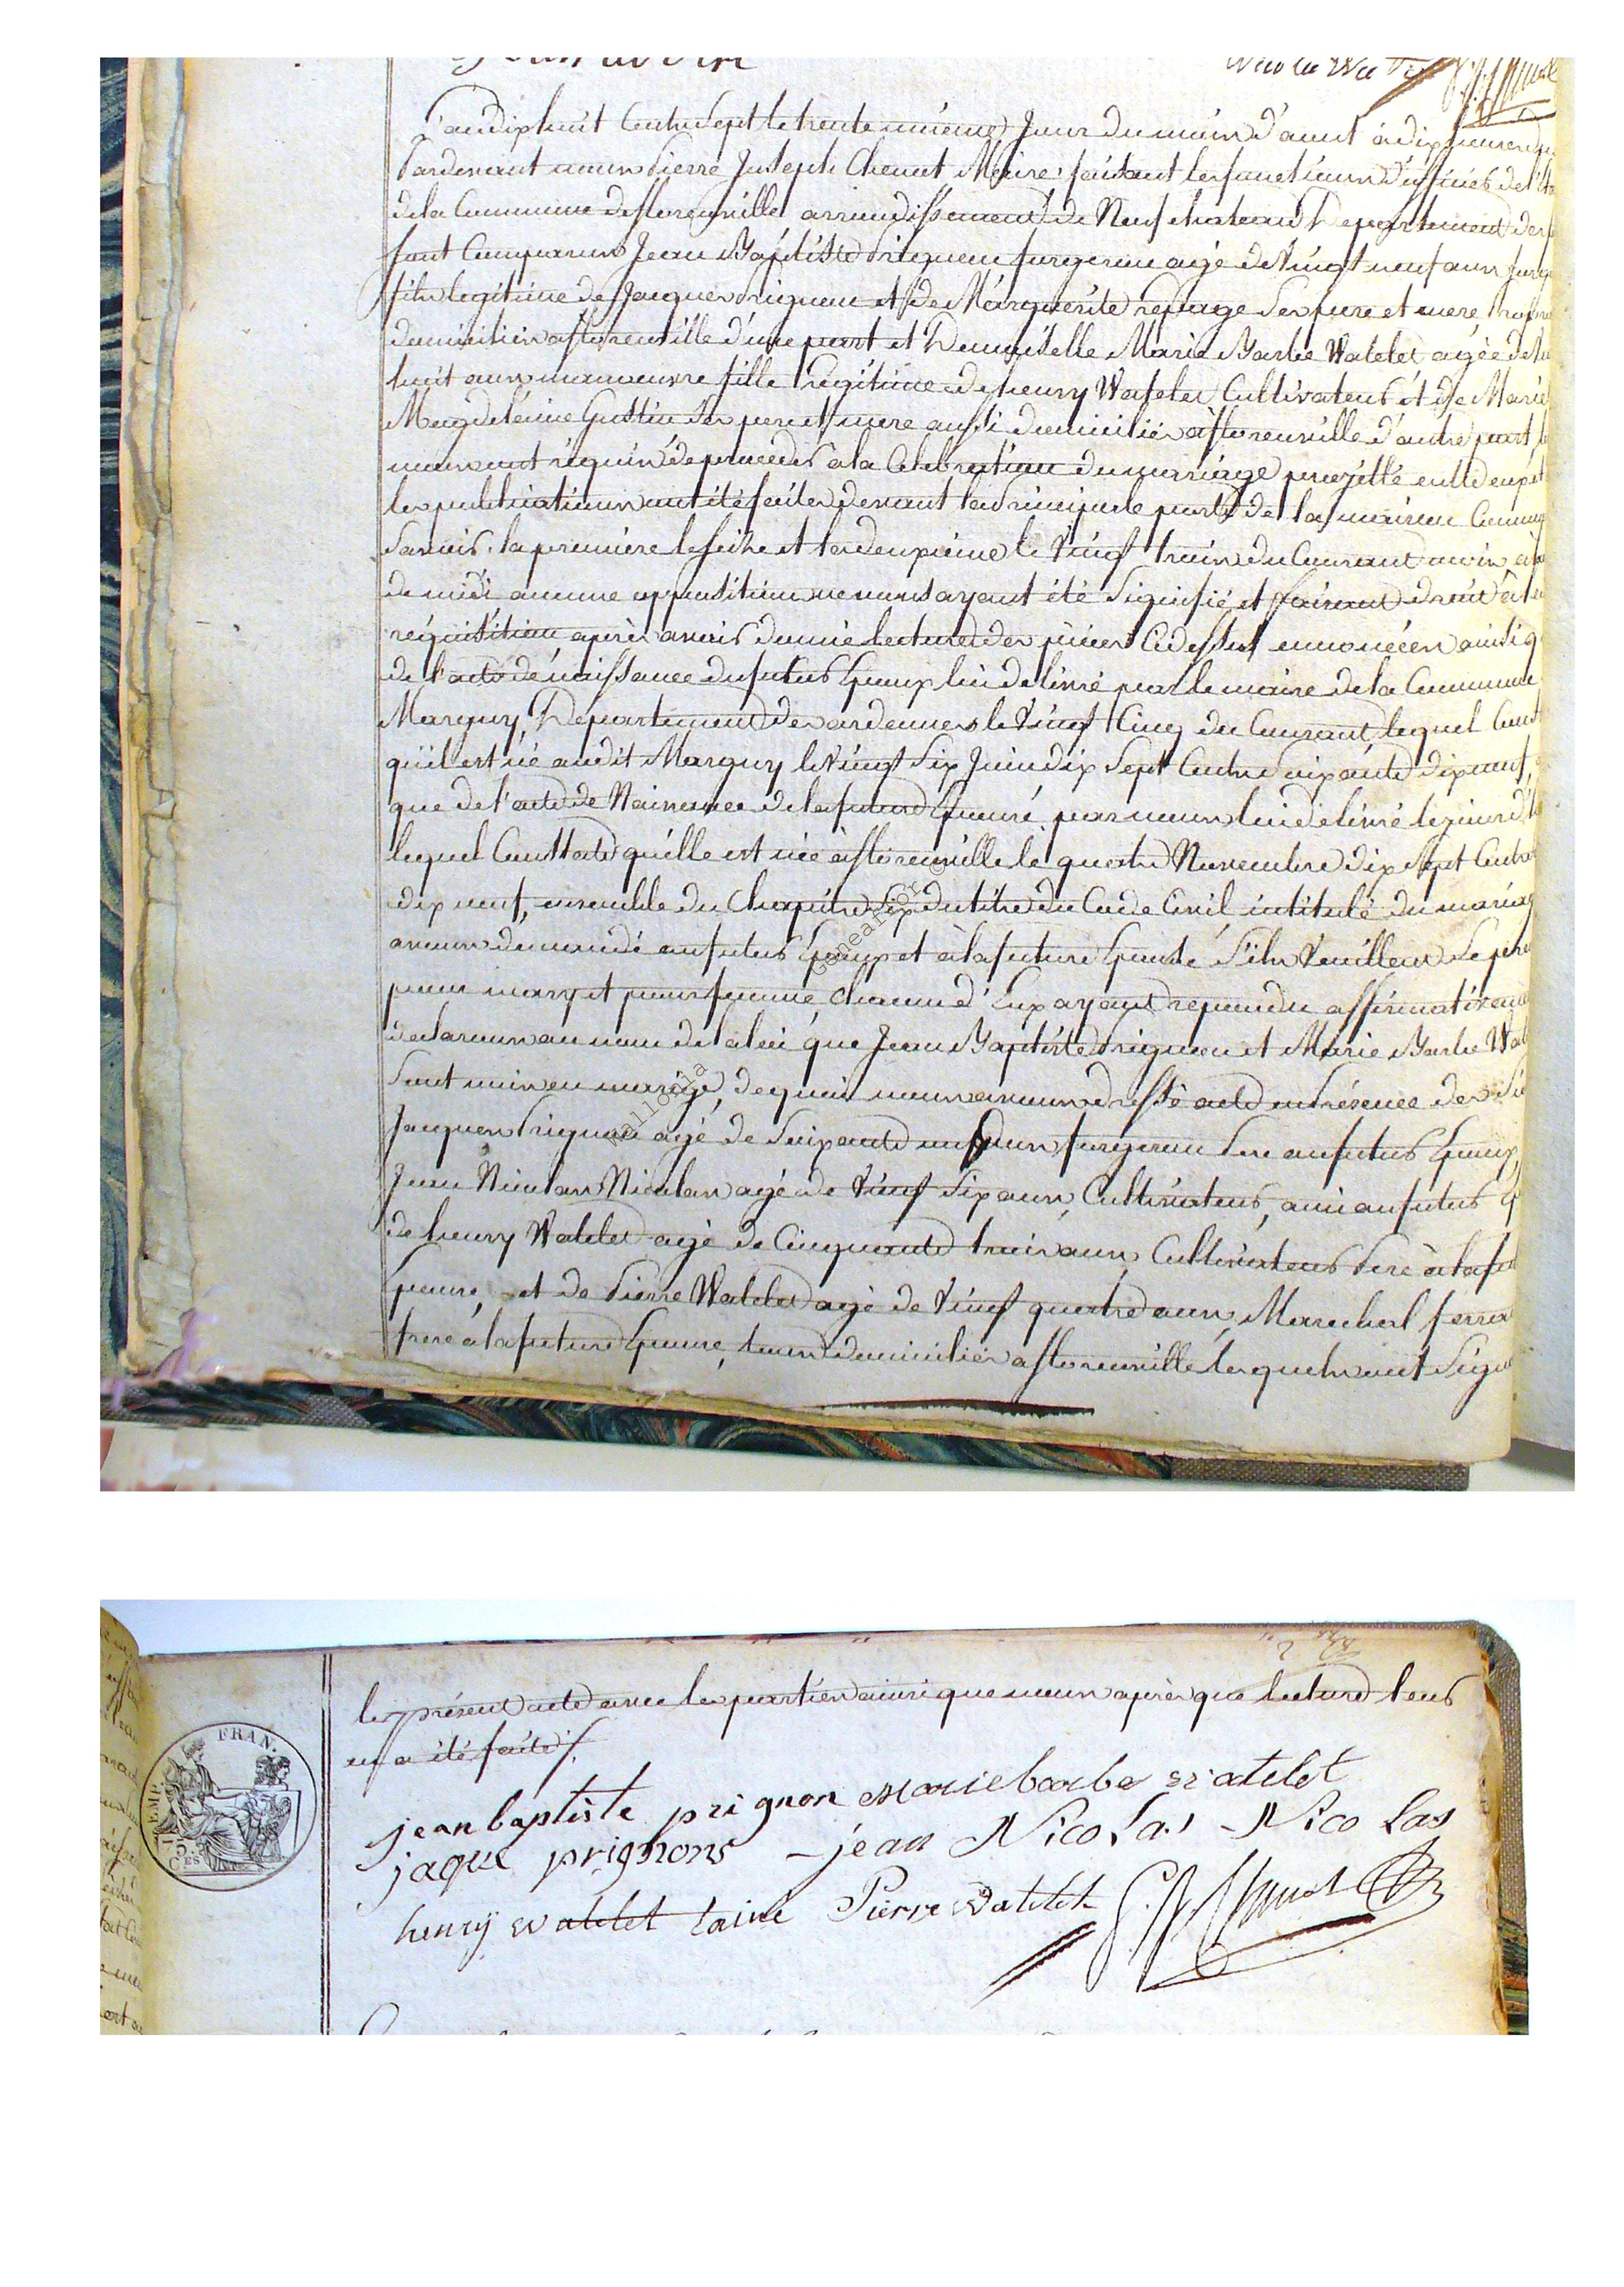 L'an dix huit Cent Sept le trente unieme Jour du mois d'aout à dix heures du
Pardevant nous Pierre Joseph Chenot Maire faisant les fonctions d'officier de l'
de la Commune de florenville arrondissement de Neufchateau Departement des
sont Comparus Jean Baptiste Prignon forgeron agé de Vingt neuf ans
fils legitime de Jacques Prignon et de Marguerite ses pere et mere
domicilies a florenville d'une part et Demoiselle Marie Barbe Watelet agée de
huit ans manoeuvre fille legitime de henry Watelet Cultivateur et de Marie
Magdeleine Gustin ses pere et mere aussi domiciliés à florenville d'autre part
nous ont requis de proceder a la Celebration du marriage projetté entre eux et
les publications ont été faites devant la principale porte de la maison Commu
Savoir, la premiere le seize et la deuxieme le Vingt trois du Courant mois à
de midi aucune opposition ne nous ayant été Signifié et faisant droit à
requisition, après avoir donné lecture des pieces Cidessus enoncéen ainsi q
de l'acte de naissance du futur Epoux lui delivré par le maire de la Commune
Marguy, Departement des ardennes le Vingt Cinq du Courant, lequel Const
qu'il est né audit Marguy le Vingt Six Juin dix Sept Cent Soixante dix neuf,
que de l'acte de Naissance de la future Epouse par nous lui délivré le jour d'
lequel Constate quélle est née à florenville le quatre Novembre dix Sept Cent
dix neuf, ensemble du Chapitre Six du titre du Code Civil intitulé du mariag
avons demandé au futur Epoux et à la future Epouse S'ils Veuillent Se pren
pour mary et pour femme, Chacun d'Eux ayant repondu affirmativem
declarons au nom de la loi que Jean Baptiste Prignon et Marie Barbe Wat
Sont unis en mariage, de quoi nous avons dressé acte en Présence de
Jacques Prignon agé de Soixante ans forgeron Pere au futur Epoux,
Jean Nicolas Nicolas agé de Vingt Six ans, Cultivateur, ami au futur
de henry Watelet agé de Cinquante trois ans Cultivateur Pere à la fu
Epouse, et de Pierre Watelet agé de Vingt quatre ans, Marechal ferra
frere à la future Epouse, tous domiciliés a florenville lesquels ont Signé
le présent acte avec les parties ainsi que nous après que lecture leur
en a été faite
jean baptiste prignon marie barbe watelet
jaque prignons jean Nicolas Nicolas
henry watelet lainé Pierre Watelet
FRAN.
EMP.
wallonia genearbor ©